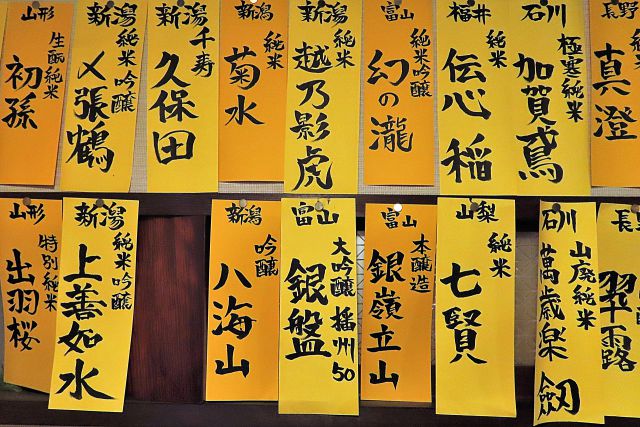 山形
生酛純米
初孫
新潟
純米吟醸
〆張鶴
新潟
千寿
久保田
新潟
純米
菊水
新潟
純米
越乃影虎
富山
純米吟醸
幻の瀧
福井
純米
伝心 稲
石川
極寒純米
加賀鳶
長野
純米
真澄
山形
特別純米
出羽桜
新潟
純米吟醸
上善如水
新潟
吟醸
八海山
富山
大吟醸 播州50
銀盤
富山
本醸造
銀嶺立山
山梨
純米
七賢
石川
山廃純米
萬歳楽 剱
長
翠露